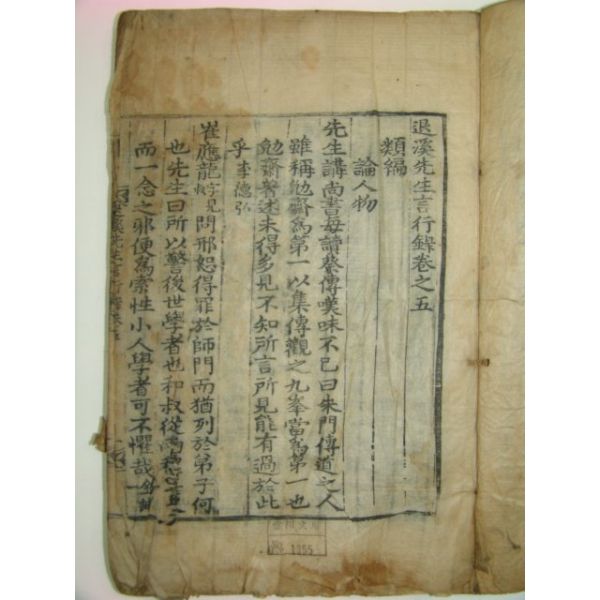 退溪先生言行錄卷之五
類編
論人物
先生講尚書每讀蔡傳嘆味不已曰朱門傳道之人
雖稱勉齋爲第一以集傳觀之九峯當爲第一也
勉齋著述未得多見不知所言所見能有過於此
乎 李德弘
崔應龍 字見叔 問邪恕得罪於師門而猶列於弟子何
也先生曰所以警後世學者也和叔從
而一念之邪便爲索性小人學者可不懼哉
1355